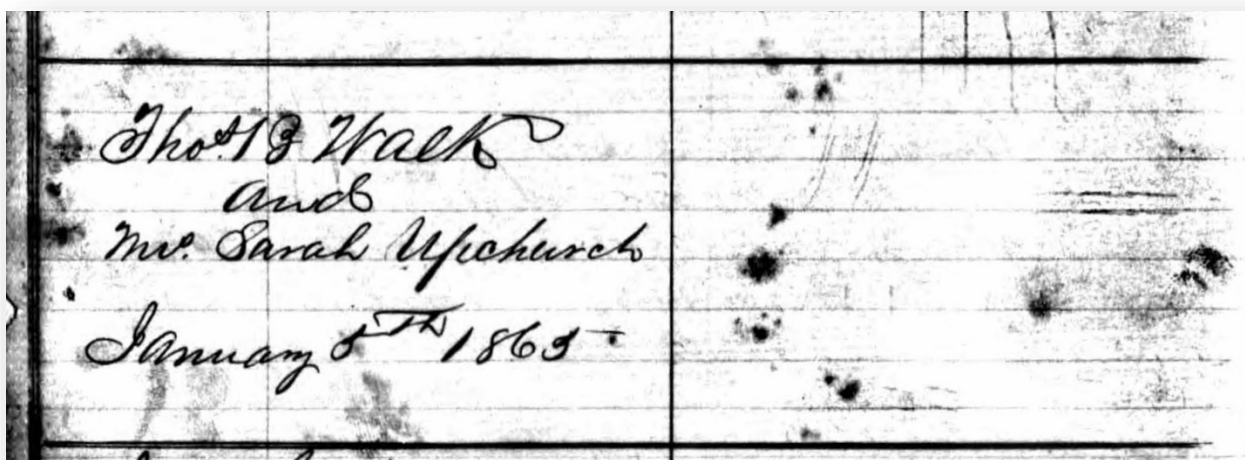 Thos. B Walk
and
Mrs. Sarah Upchurch
January 5th 1865